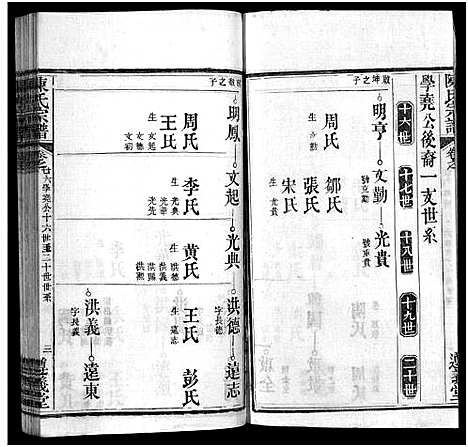 陳氏宗譜
卷之
學堯公後裔一支世系
十六世 十七世 十八世 十九世 二十世
啟坤之子
明亨 文勤 光貴
號重貴
周氏 鄒氏
張氏
宋氏
生 光貴
之子
明鳳 文起 光典 洪德 遠志
周氏 李氏 黃氏 王氏 彭氏
王氏
生 文起 文德 文初
生 光典 光先
生 洪德 洪義
生 遠志
洪義 遠東
字長義
陳氏宗譜
卷之七
六學堯公十六世至二十世世系
三